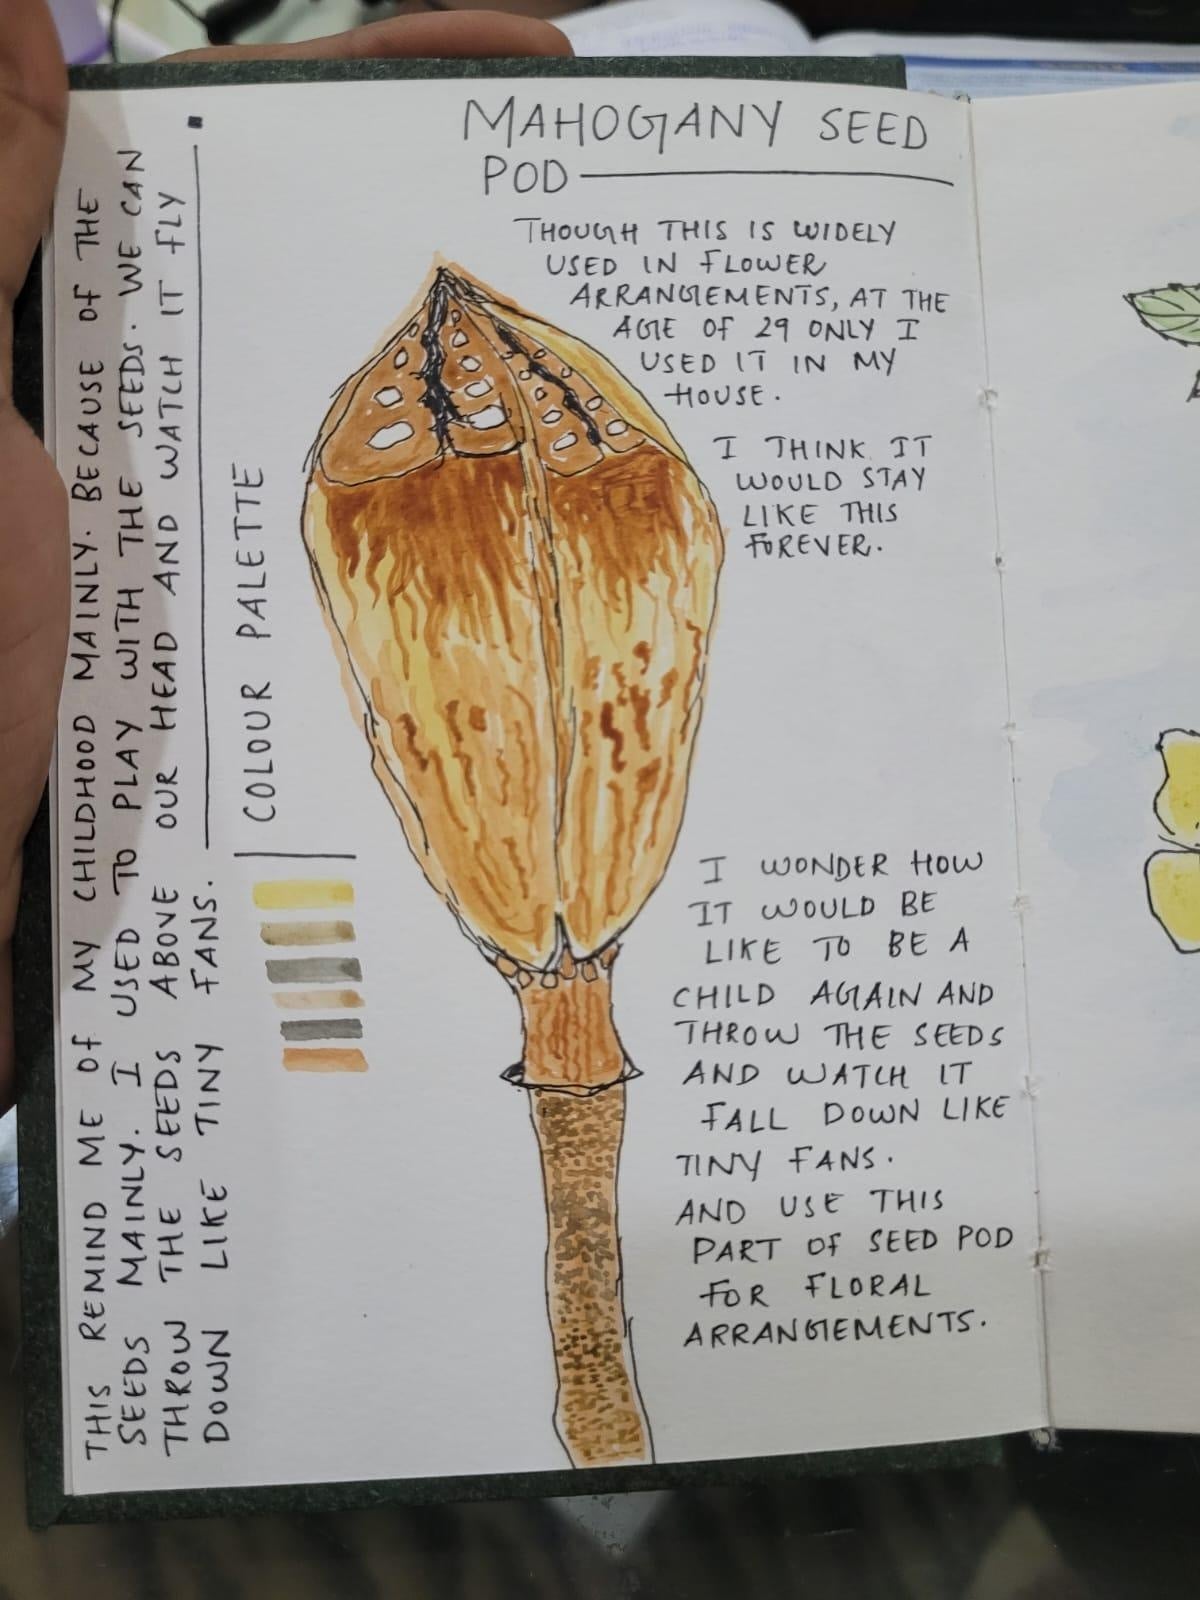 MAHOGANY SEED
POD
THOUGH THIS IS WIDELY
USED IN FLOWER
ARRANGEMENTS, AT THE
AGE OF 29 ONLY I
USED IT IN MY
HOUSE.
I THINK IT
WOULD STAY
LIKE THIS
FOREVER.
I WONDER HOW
IT WOULD BE
LIKE TO BE A
CHILD AGAIN AND
THROW THE SEEDS
AND WATCH IT
FALL DOWN LIKE
TINY FANS.
AND USE THIS
PART OF SEED POD
FOR FLORAL
ARRANGEMENTS.
COLOUR PALETTE
THIS REMIND ME OF MY CHILDHOOD MAINLY. BECAUSE OF THE
SEEDS MAINLY. I USED TO PLAY WITH THE SEEDS. WE CAN
THROW THE SEEDS ABOVE OUR HEAD AND WATCH IT FLY
DOWN LIKE TINY FANS.